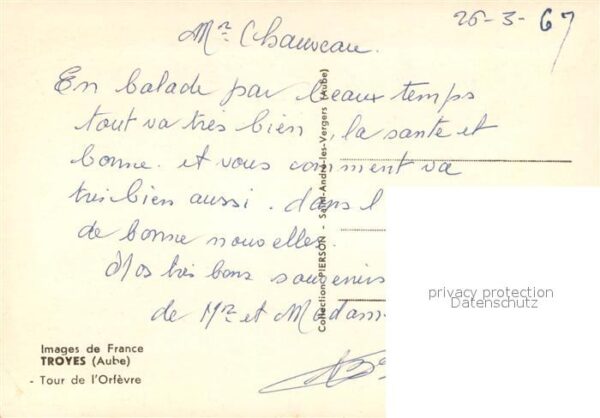 26-3-67
Mr Chauveau.
En balade par beaux temps
tout va très bien, la sante et
bonne. et vous comment va
très bien aussi. dans l
de bonne nouvelles.
Nos très bons souvenirs
de Mr et Madam
Collections PIERSON - Saint-André-les-Vergers (Aube)
privacy protection
Datenschutz
Images de France
TROYES (Aube)
- Tour de l'Orfèvre